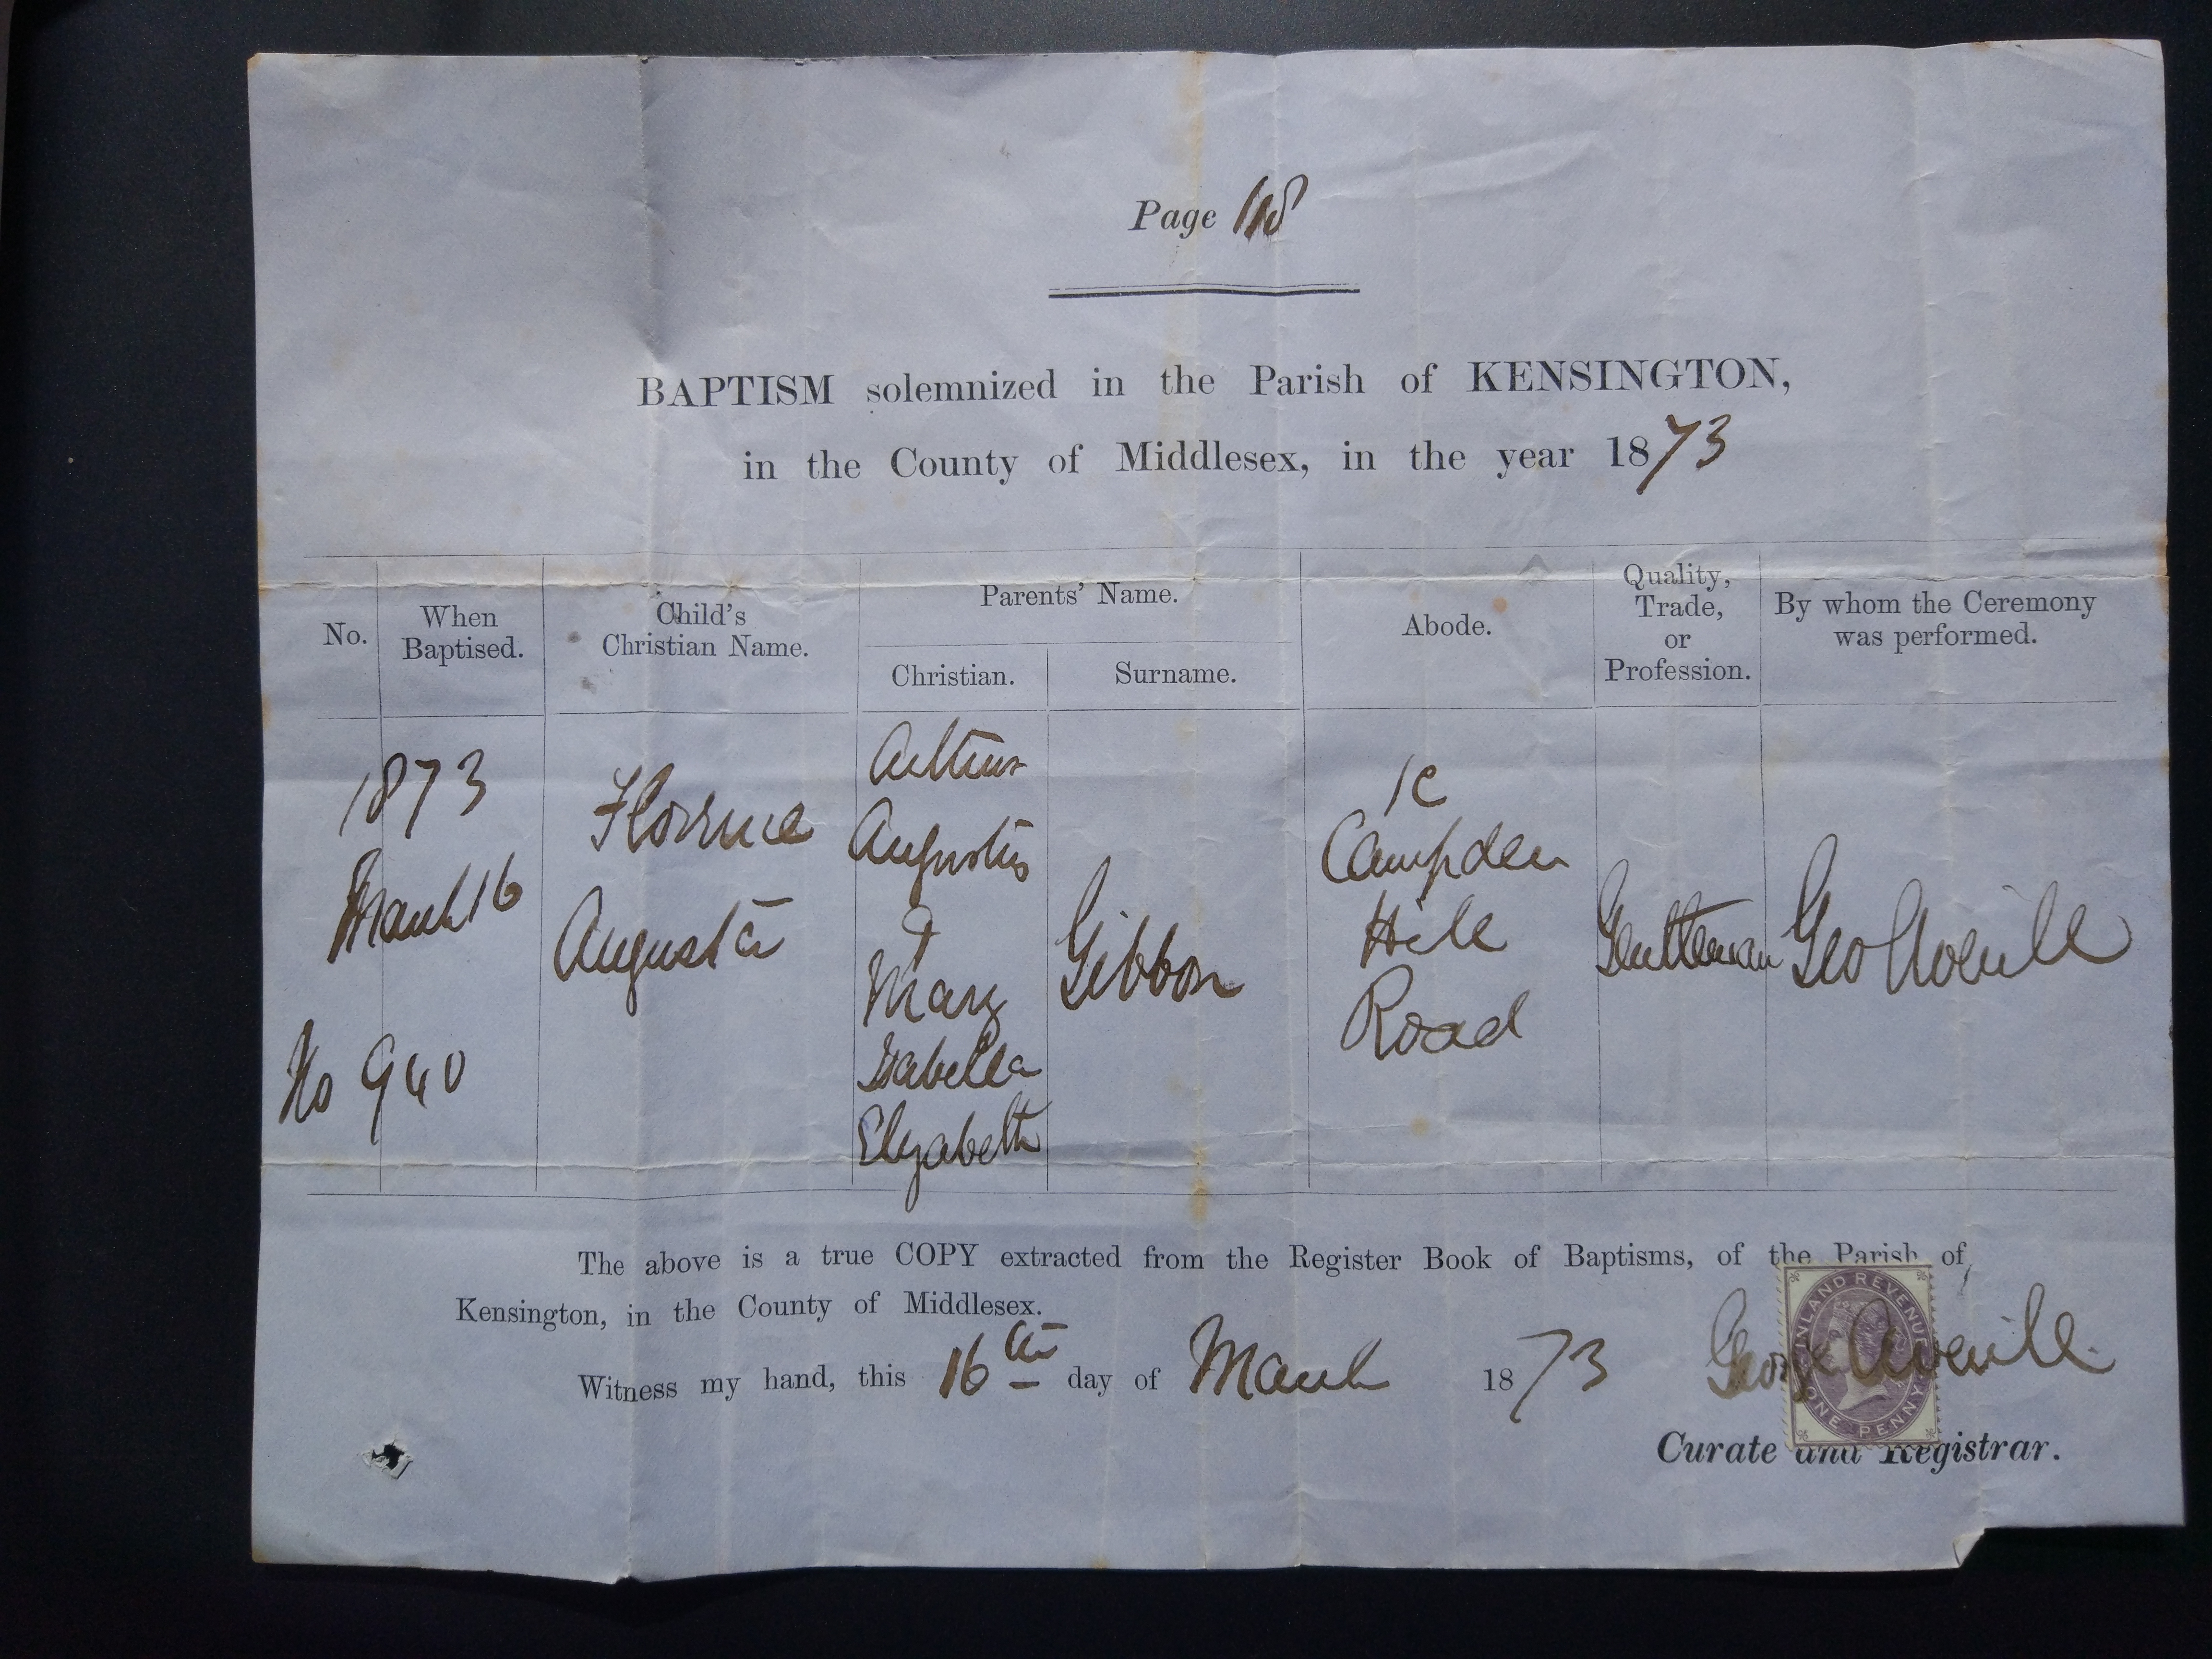 Page 118
BAPTISM solemnized in the Parish of KENSINGTON,
in the County of Middlesex, in the year 1873
No.
When
Baptised.
Child's
Christian Name.
Parents' Name.
Christian.
Surname.
Abode.
Quality,
Trade,
or
Profession.
By whom the Ceremony
was performed.
1873
March 16
No 940
Florence
Augusta
Arthur
Augustus
&
Mary
Isabella
Elizabeth
Gibbon
1c
Campden
Hill
Road
Gentleman
Geo Averill
The above is a true COPY extracted from the Register Book of Baptisms, of the Parish of
Kensington, in the County of Middlesex.
Witness my hand, this 16th day of March 1873
George Averill
INLAND REVENUE
ONE PENNY
Curate and Registrar.